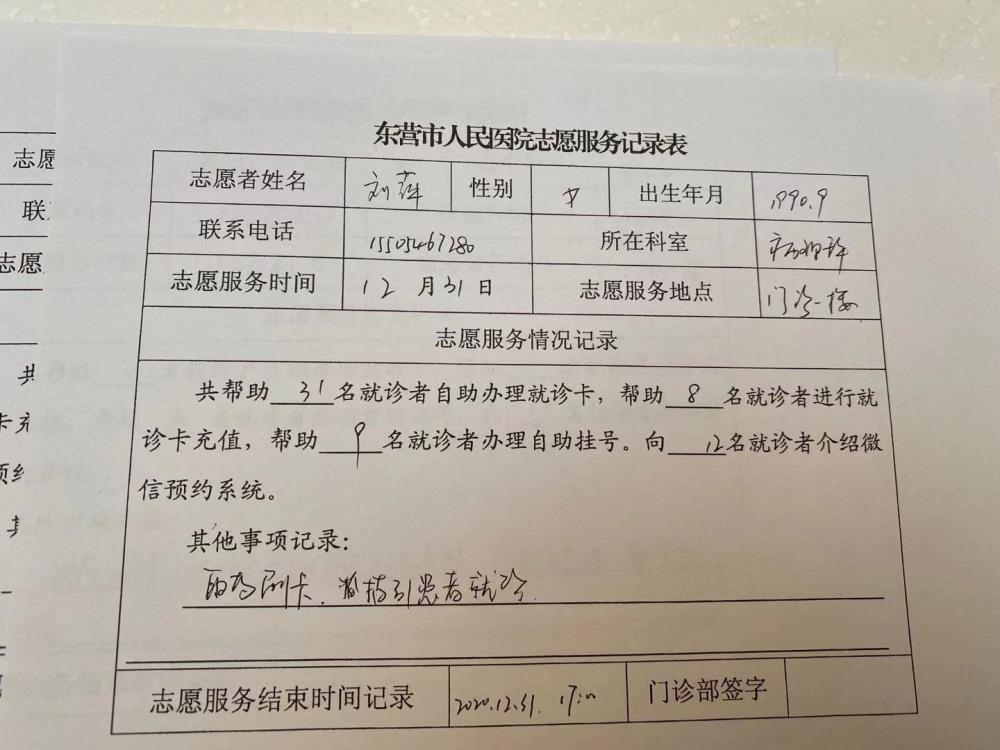 东营市人民医院志愿服务记录表
志愿者姓名 刘萍 性别 女 出生年月 1990.9
联系电话 15505467280 所在科室
志愿服务时间 12 月31日 志愿服务地点 门诊一楼
志愿服务情况记录
共帮助 31 名就诊者自助办理就诊卡，帮助 8 名就诊者进行就
诊卡充值，帮助 9 名就诊者办理自助挂号。向 12名就诊者介绍微
信预约系统。
其他事项记录：
刷卡、指引患者就诊
志愿服务结束时间记录 2020.12.31. 17:00 门诊部签字
志愿
联
志愿
共
卡充
预约
其